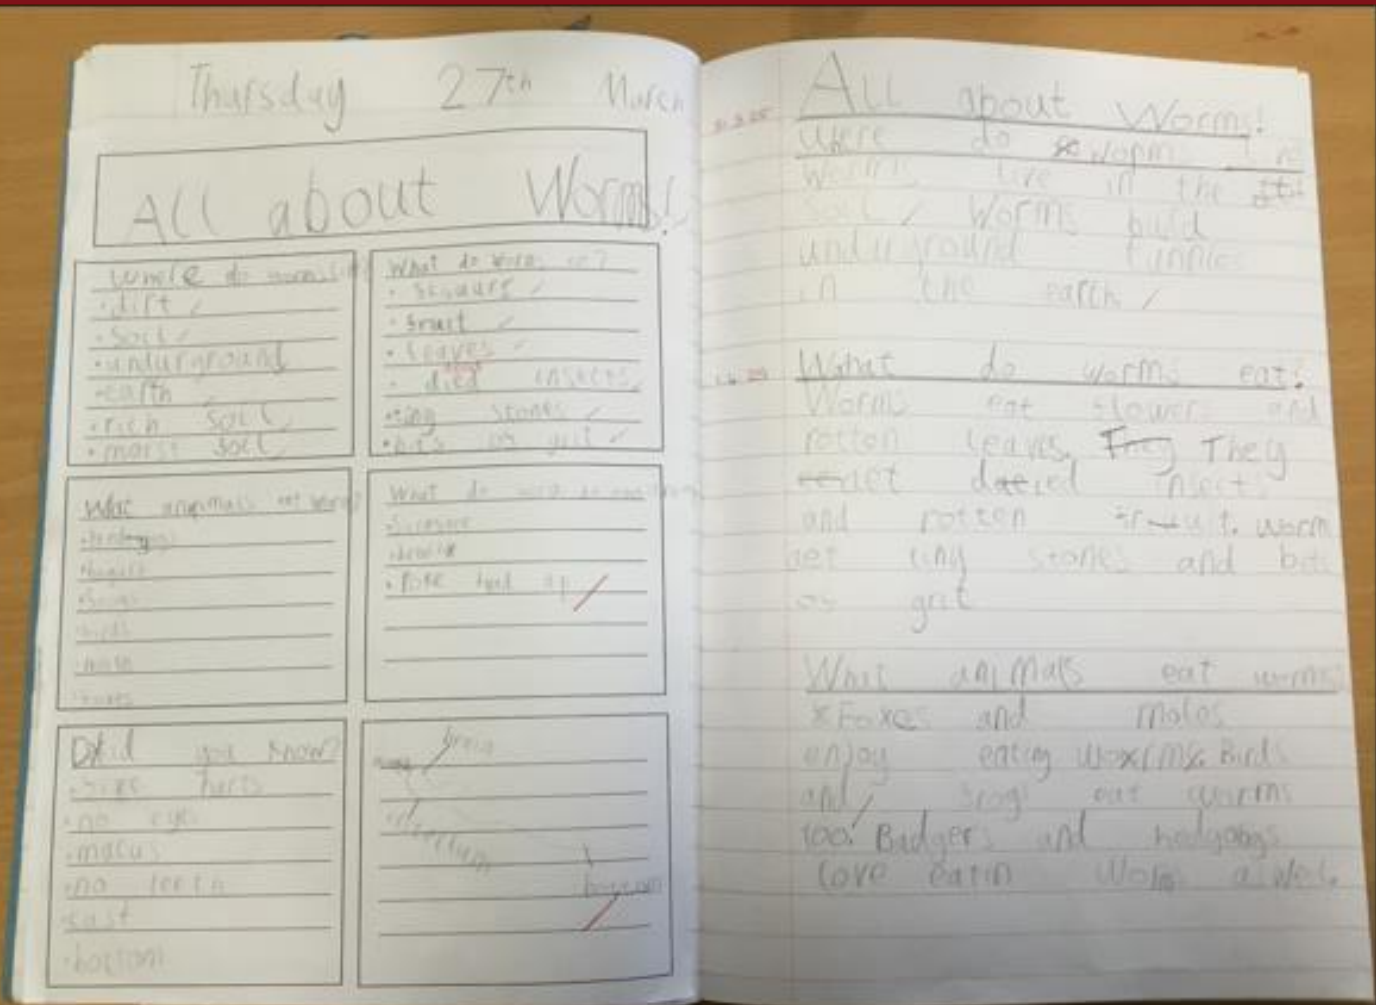 Thursday 27th March
All about Worms!
Where do worms live
• dirt
• soil
• undurground
• earth
• rich soil
• moist soil
What do worms eat?
• flowers
• fruit
• leaves
• died insects
• ting stones
• bits of grit
What anymals eat worms?
• birds
• foxes
What do worms do
• Poke had up
Did you know?
• five harts
• no eyes
• mucus
• no teeth
• cast
• bottom
brain
bottom
All about Worms!
Where do worms live
Worms live in the
soil. Worms build
undurground tunnles
in the earth.
What do worms eat?
Worms eat flowers and
rotten leaves. They They
insects
and rotten fruit. worm
aet ting stones and bits
of grit
What animals eat worms?
Foxes and moles
enjoy eating worms. Birds
and frogs eat worms
too. Badgers and hedgohgs
love eatin worms a well.